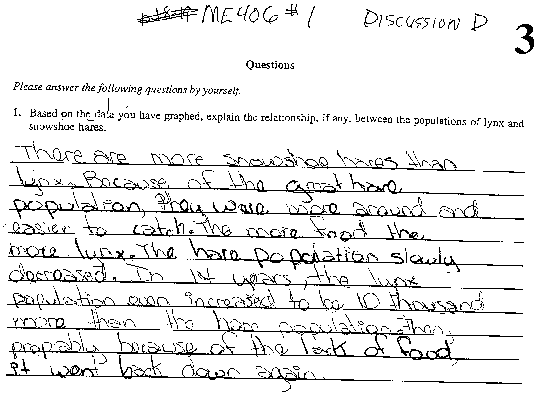 ME406 #1 DISCUSSION D
3
Questions
Please answer the following questions by yourself.
1. Based on the data you have graphed, explain the relationship, if any, between the populations of lynx and
snowshoe hares.
There are more snowshoe hares than
lynx. Because of the great hare
population, they were more around and
easier to catch. The more food the
more lynx. The hare population slowly
decreased. In 14 years, the lynx
population even increased to be 10 thousand
more than the hare population. Then,
propably because of the lack of food,
it went back down again.